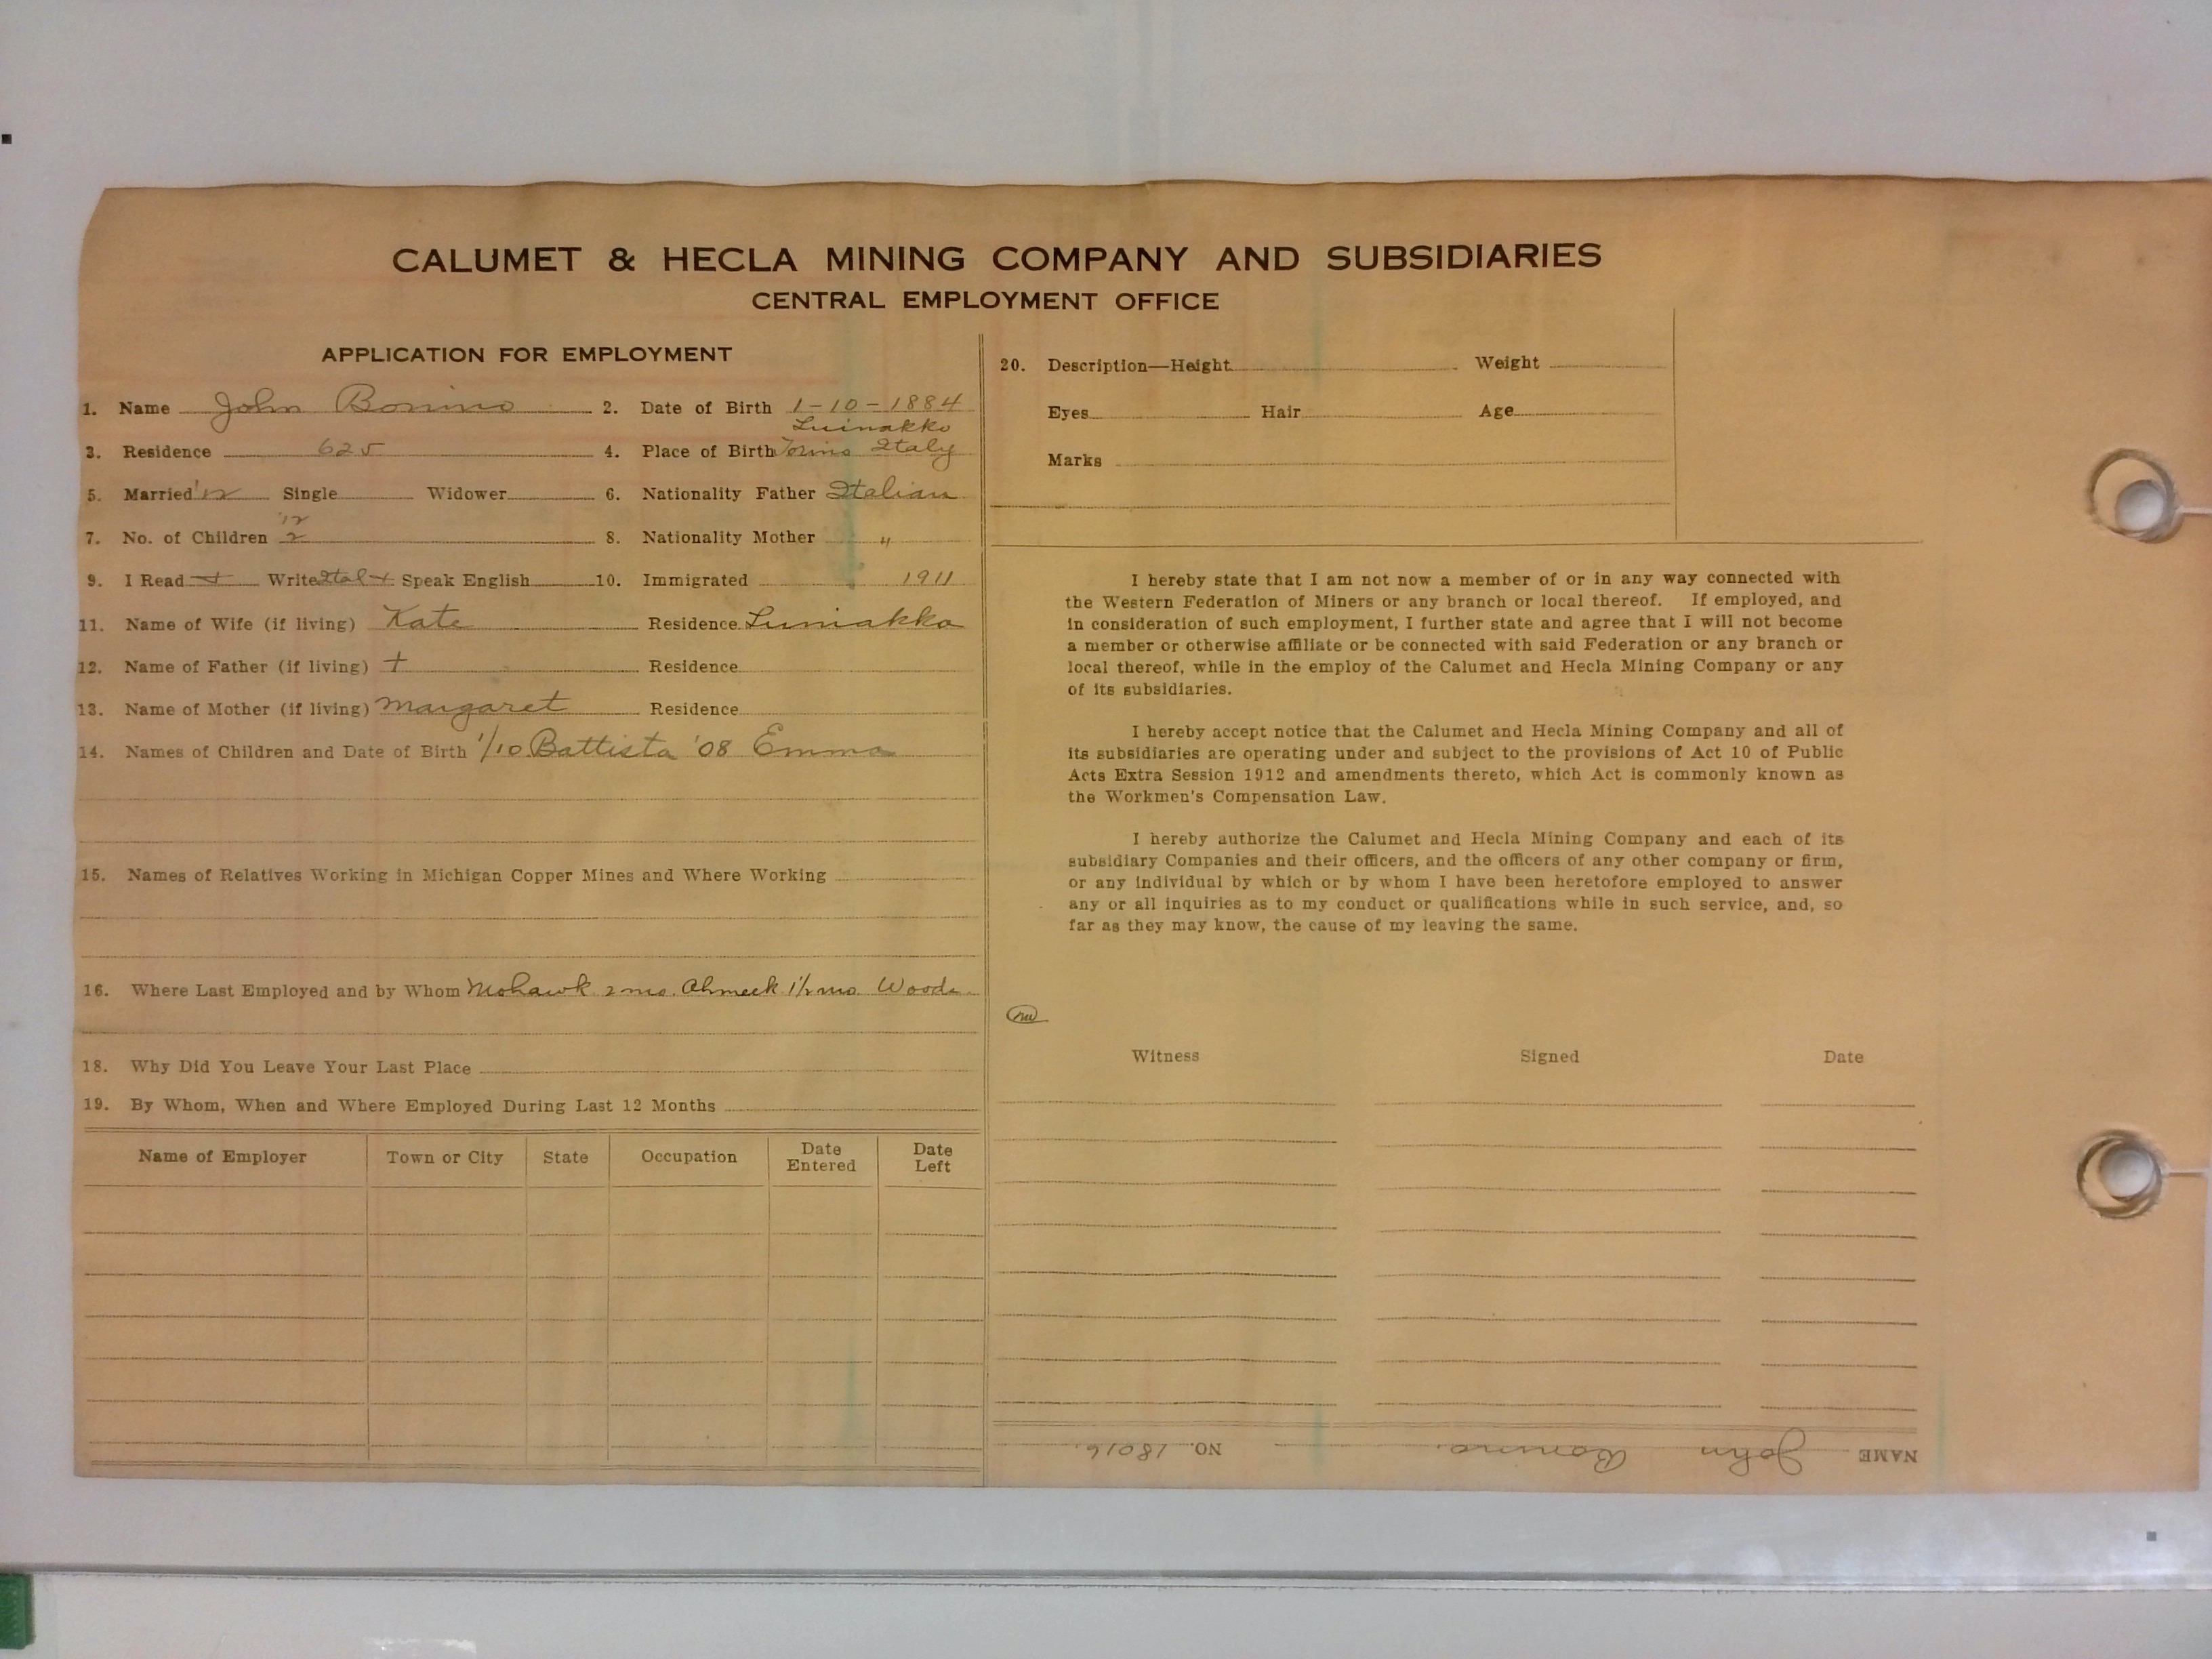 CALUMET & HECLA MINING COMPANY AND SUBSIDIARIES
CENTRAL EMPLOYMENT OFFICE
APPLICATION FOR EMPLOYMENT
1. Name John Bonino 2. Date of Birth 1-10-1884
Luinakko
3. Residence 625 4. Place of Birth Torino Italy
5. Married '12 Single Widower 6. Nationality Father Italian
'12
7. No. of Children 2 8. Nationality Mother "
9. I Read + Write Ital + Speak English 10. Immigrated 1911
11. Name of Wife (if living) Kate Residence
12. Name of Father (if living) + Residence
13. Name of Mother (if living) Margaret Residence
14. Names of Children and Date of Birth '/10 Battista '08 Emma
15. Names of Relatives Working in Michigan Copper Mines and Where Working
16. Where Last Employed and by Whom Mohawk 2 mo. Ahmeek 1 1/2 mo. Woods
18. Why Did You Leave Your Last Place
19. By Whom, When and Where Employed During Last 12 Months
Name of Employer Town or City State Occupation Date Entered Date Left
20. Description—Height Weight
Eyes Hair Age
Marks
I hereby state that I am not now a member of or in any way connected with
the Western Federation of Miners or any branch or local thereof. If employed, and
in consideration of such employment, I further state and agree that I will not become
a member or otherwise affiliate or be connected with said Federation or any branch or
local thereof, while in the employ of the Calumet and Hecla Mining Company or any
of its subsidiaries.
I hereby accept notice that the Calumet and Hecla Mining Company and all of
its subsidiaries are operating under and subject to the provisions of Act 10 of Public
Acts Extra Session 1912 and amendments thereto, which Act is commonly known as
the Workmen's Compensation Law.
I hereby authorize the Calumet and Hecla Mining Company and each of its
subsidiary Companies and their officers, and the officers of any other company or firm,
or any individual by which or by whom I have been heretofore employed to answer
any or all inquiries as to my conduct or qualifications while in such service, and, so
far as they may know, the cause of my leaving the same.
Witness Signed Date
NAME John Bonino. NO. 18016.